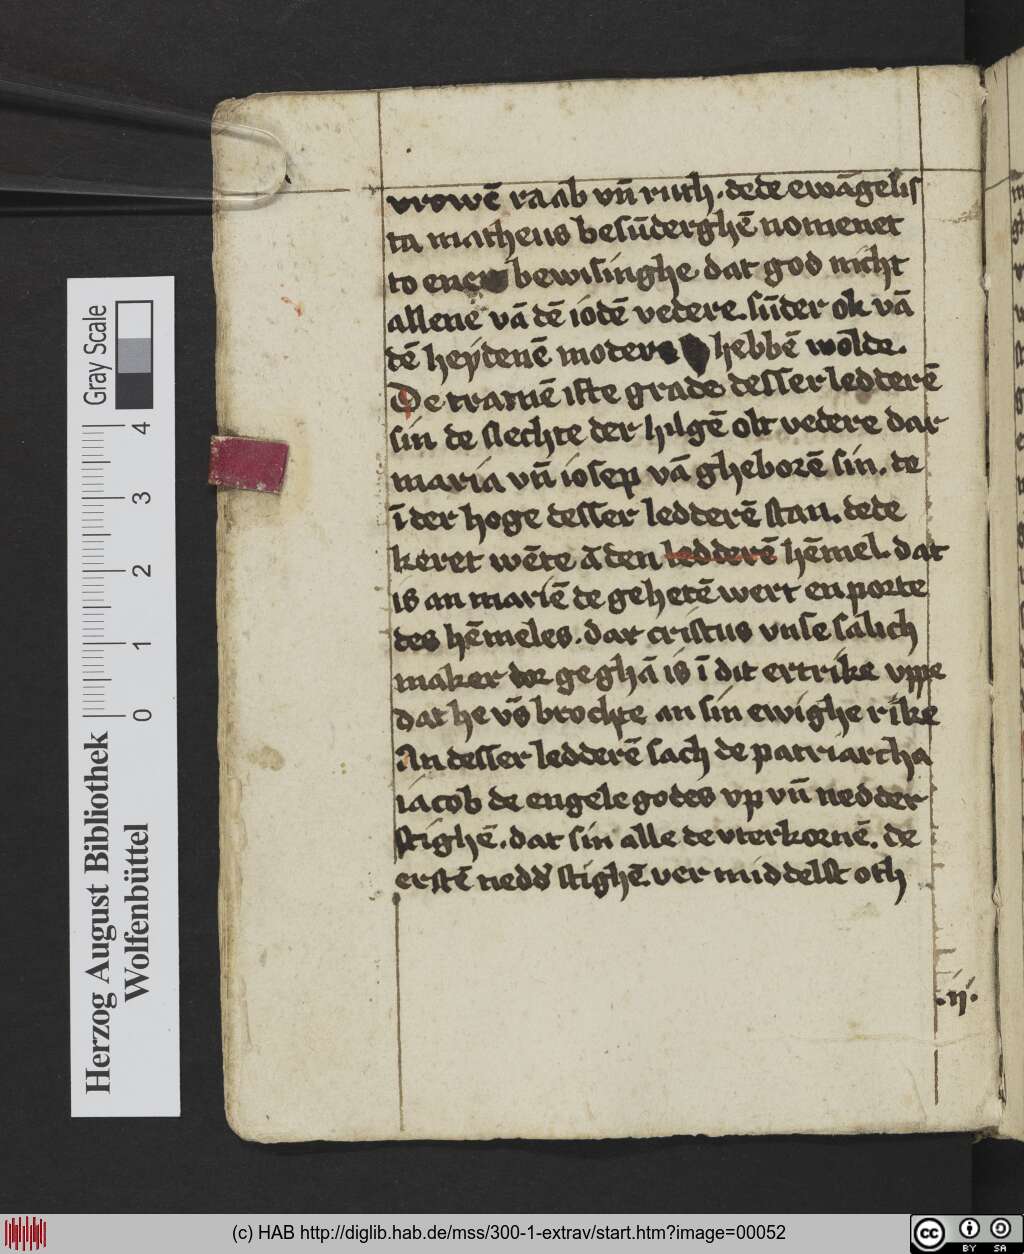 vrowē raab vn̄ ruth. dede ewāgelis
ta matheus besūderghē nomenet
to ener bewisinghe dat god nicht
allene vā dē iodē vedere. sūder ok vā
dē heydenē moders hebbē wolde.
De tramē ifte grade desser ledderē
sin de slechte der hilgē olt vedere dar
maria vn̄ iosep vā gheborē sin. de
ī der hoge desser ledderē stan. dede
keret wēte ā den ledderē hēmel. dat
is an mariē de gehetē wert en porte
des hēmeles. dar cristus vnse salich
maker dor geghā is ī dit ertrike vppe
dat he vs̄ brochte an sin ewighe rike
An desser ledderē sach de patriarcha
iacob de engele godes vp vn̄ nedder
stighē. dat sin alle de vterkornē. de
erstē nedd' stighē. ver middelst oth
.ij.
Herzog August Bibliothek
Wolfenbüttel
Gray Scale
0 1 2 3 4
(c) HAB http://diglib.hab.de/mss/300-1-extrav/start.htm?image=00052
cc BY SA